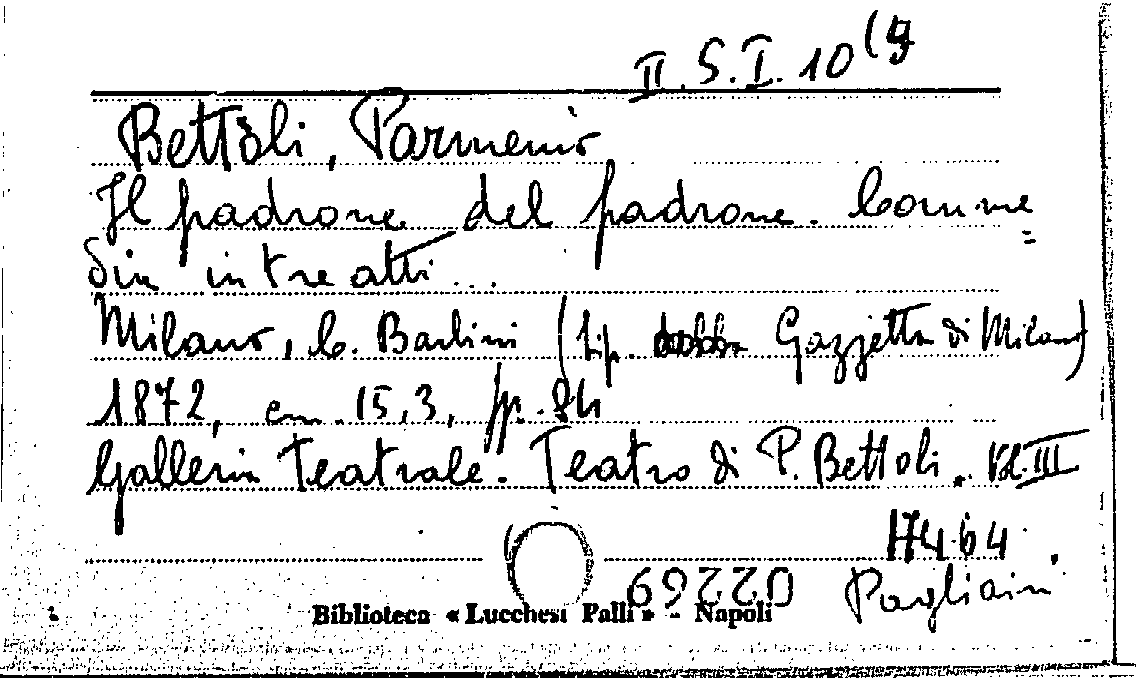 II. S. I. 10 (9
Bettòli, Parmenio
Il padrone del padrone. Comme=
dia in tre atti...
Milano, C. Barbini (tip. Gazzetta di Milano)
1872, cm. 15,3, pp. 84
Galleria Teatrale. Teatro di P. Bettoli. Vol. III
17464
02269 Pagliaini
Biblioteca « Lucchesi Palli » - Napoli